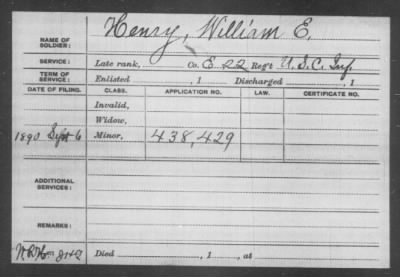 NAME OF SOLDIER: Henry, William E.
SERVICE: Late rank, Co. E 22 Reg't U.S.C. Inf
TERM OF SERVICE: Enlisted , 1 Discharged , 1
DATE OF FILING. CLASS. APPLICATION NO. LAW. CERTIFICATE NO.
Invalid,
Widow,
1890 Sept 6 Minor, 438,429
ADDITIONAL SERVICES:
REMARKS:
Died , 1 , at